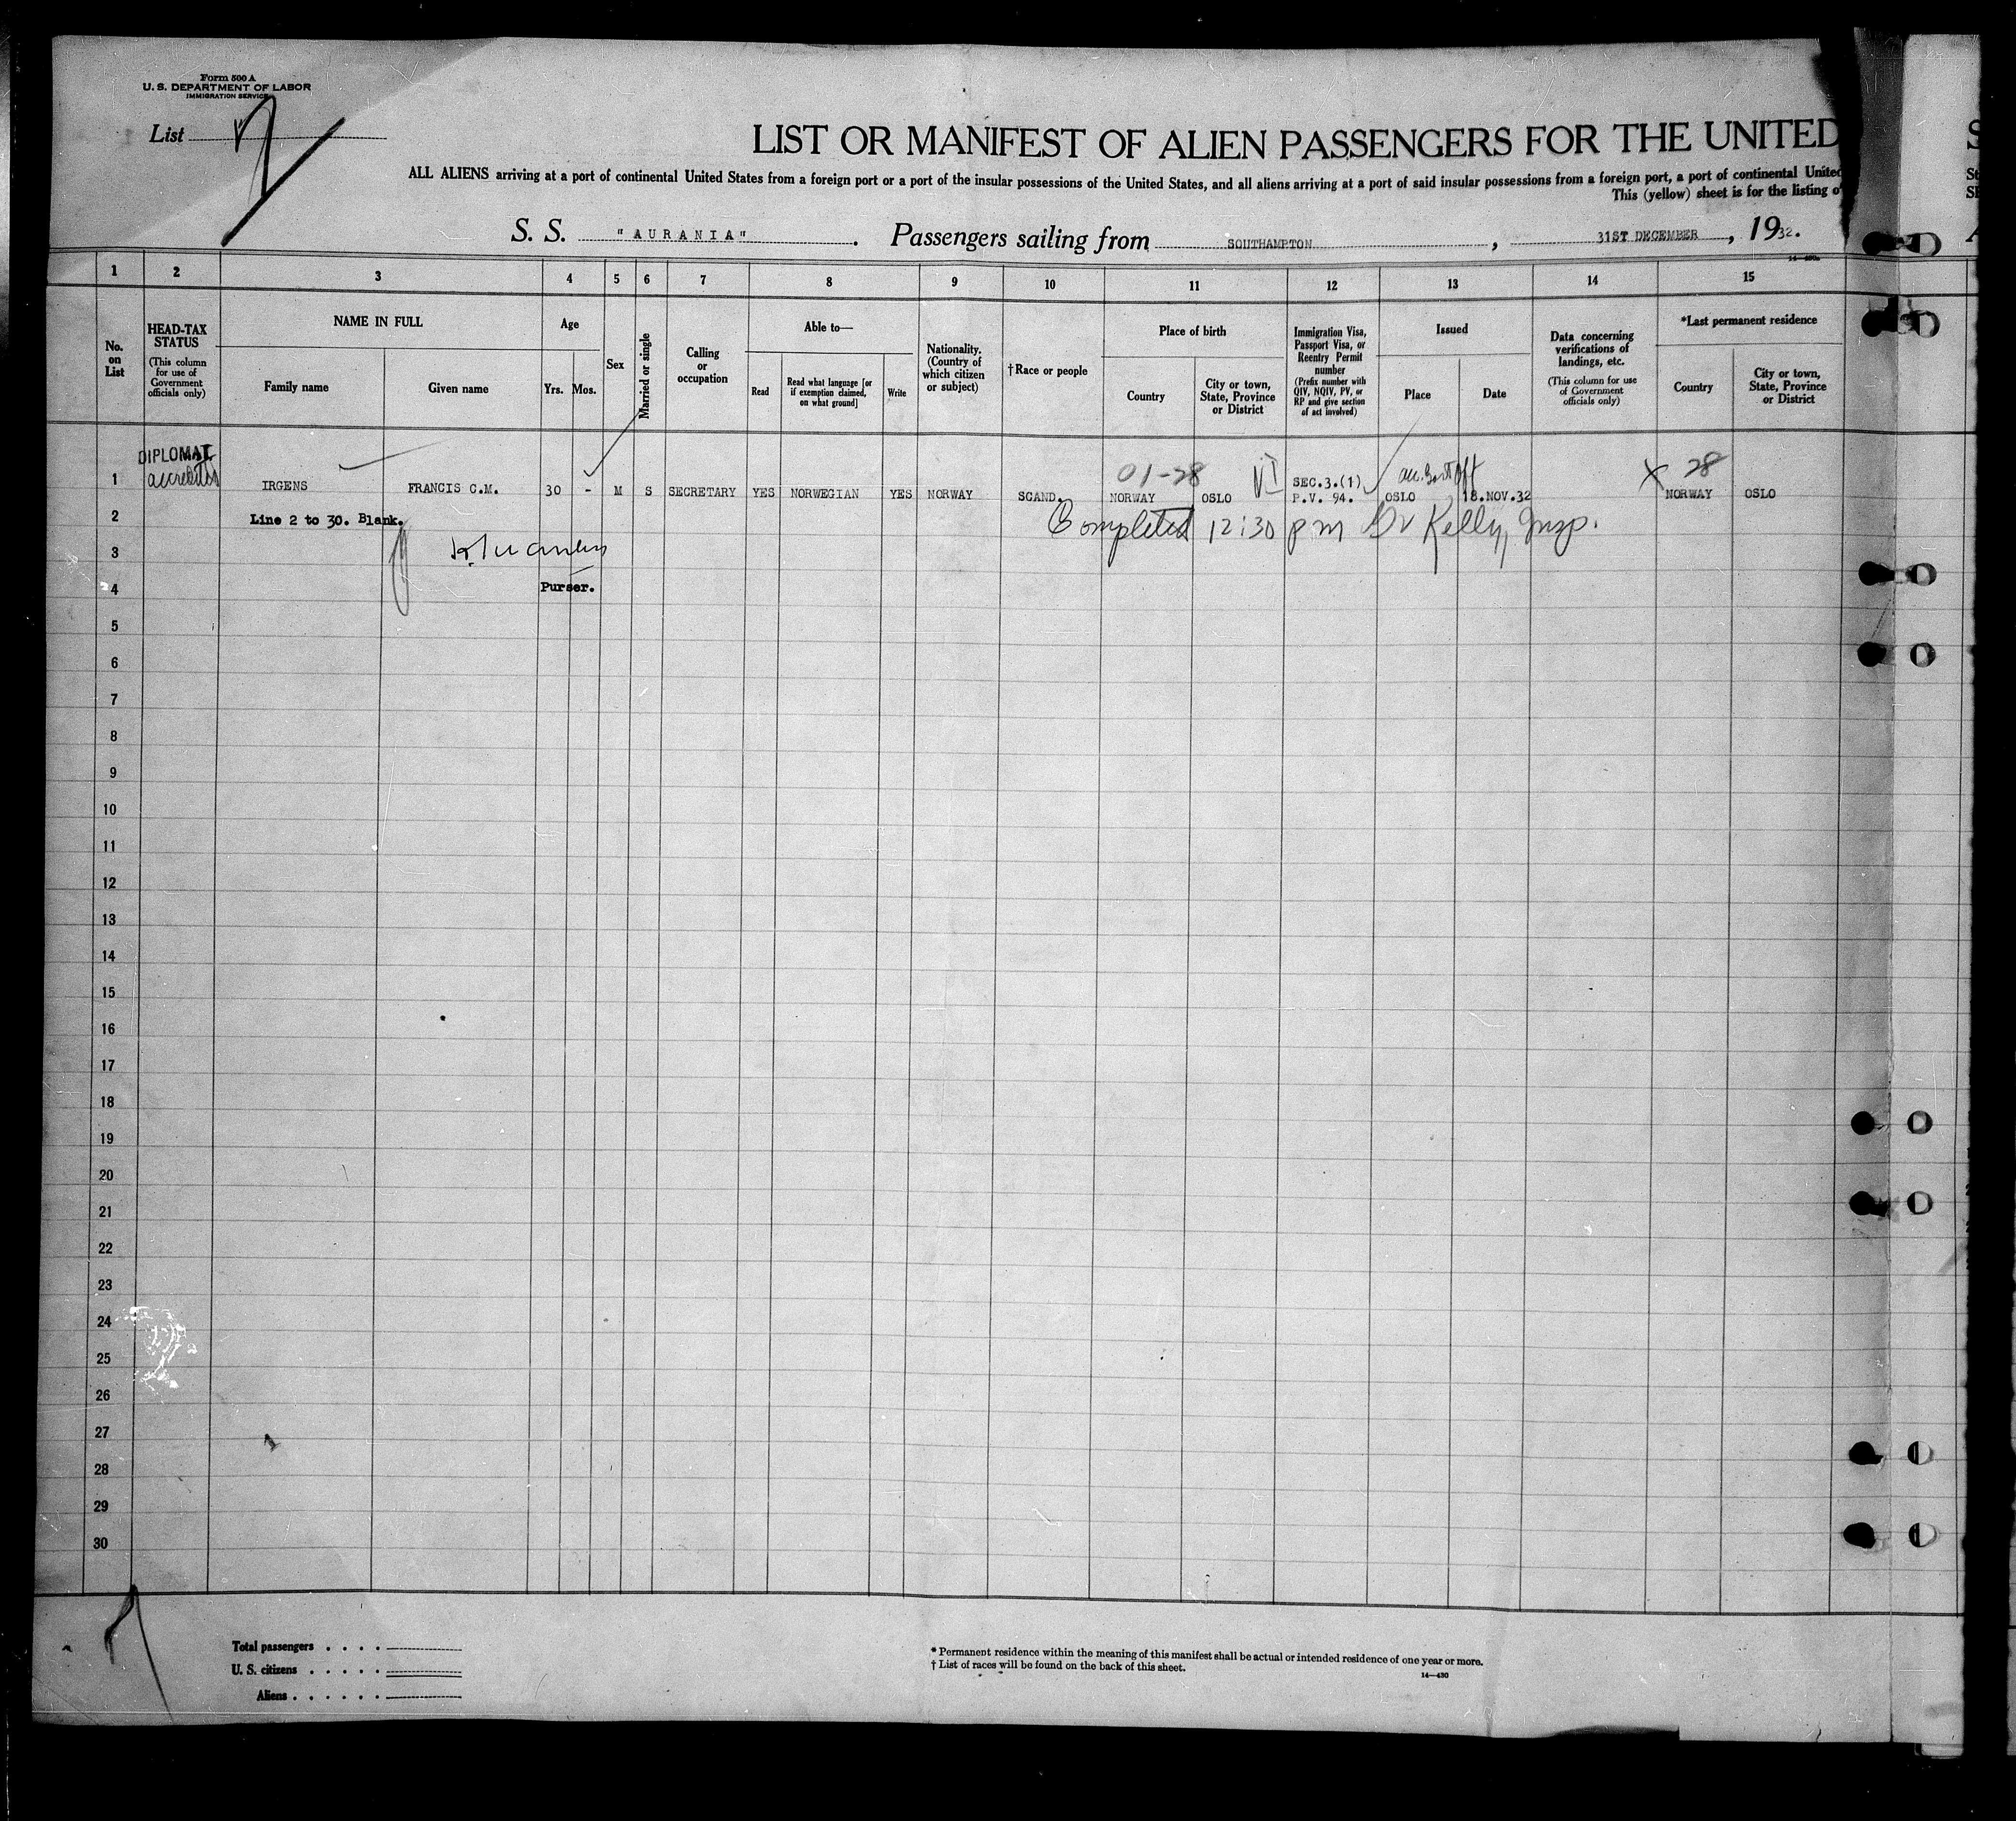 Form 500 A
U. S. DEPARTMENT OF LABOR
IMMIGRATION SERVICE
List
LIST OR MANIFEST OF ALIEN PASSENGERS FOR THE UNITED
ALL ALIENS arriving at a port of continental United States from a foreign port or a port of the insular possessions of the United States, and all aliens arriving at a port of said insular possessions from a foreign port, a port of continental United
This (yellow) sheet is for the listing of
S. S. "AURANIA". Passengers sailing from SOUTHAMPTON, 31ST DECEMBER, 1932.
1 2 3 4 5 6 7 8 9 10 11 12 13 14 15
No. on List
HEAD-TAX STATUS (This column for use of Government officials only)
NAME IN FULL
Family name
Given name
Age
Yrs. Mos.
Sex
Married or single
Calling or occupation
Able to—
Read
Read what language [or if exemption claimed, on what ground]
Write
Nationality. (Country of which citizen or subject)
†Race or people
Place of birth
Country
City or town, State, Province or District
Immigration Visa, Passport Visa, or Reentry Permit number (Prefix number with QIV, NQIV, PV, or RP and give section of act involved)
Issued
Place
Date
Data concerning verifications of landings, etc. (This column for use of Government officials only)
*Last permanent residence
Country
City or town, State, Province or District
DIPLOMAT
accredited
01-28 VI
X 28
1 IRGENS FRANCIS C.M. 30 - M S SECRETARY YES NORWEGIAN YES NORWAY SCAND. NORWAY OSLO SEC.3.(1) P.V. 94. OSLO 18.NOV.32 NORWAY OSLO
2 Line 2 to 30. Blank. Completed 12:30 pm Kelly, Insp.
3
4 Purser.
5
6
7
8
9
10
11
12
13
14
15
16
17
18
19
20
21
22
23
24
25
26
27
28
29
30
Total passengers . . . .
U. S. citizens . . . . .
Aliens . . . . . .
* Permanent residence within the meaning of this manifest shall be actual or intended residence of one year or more.
† List of races will be found on the back of this sheet.
14—430